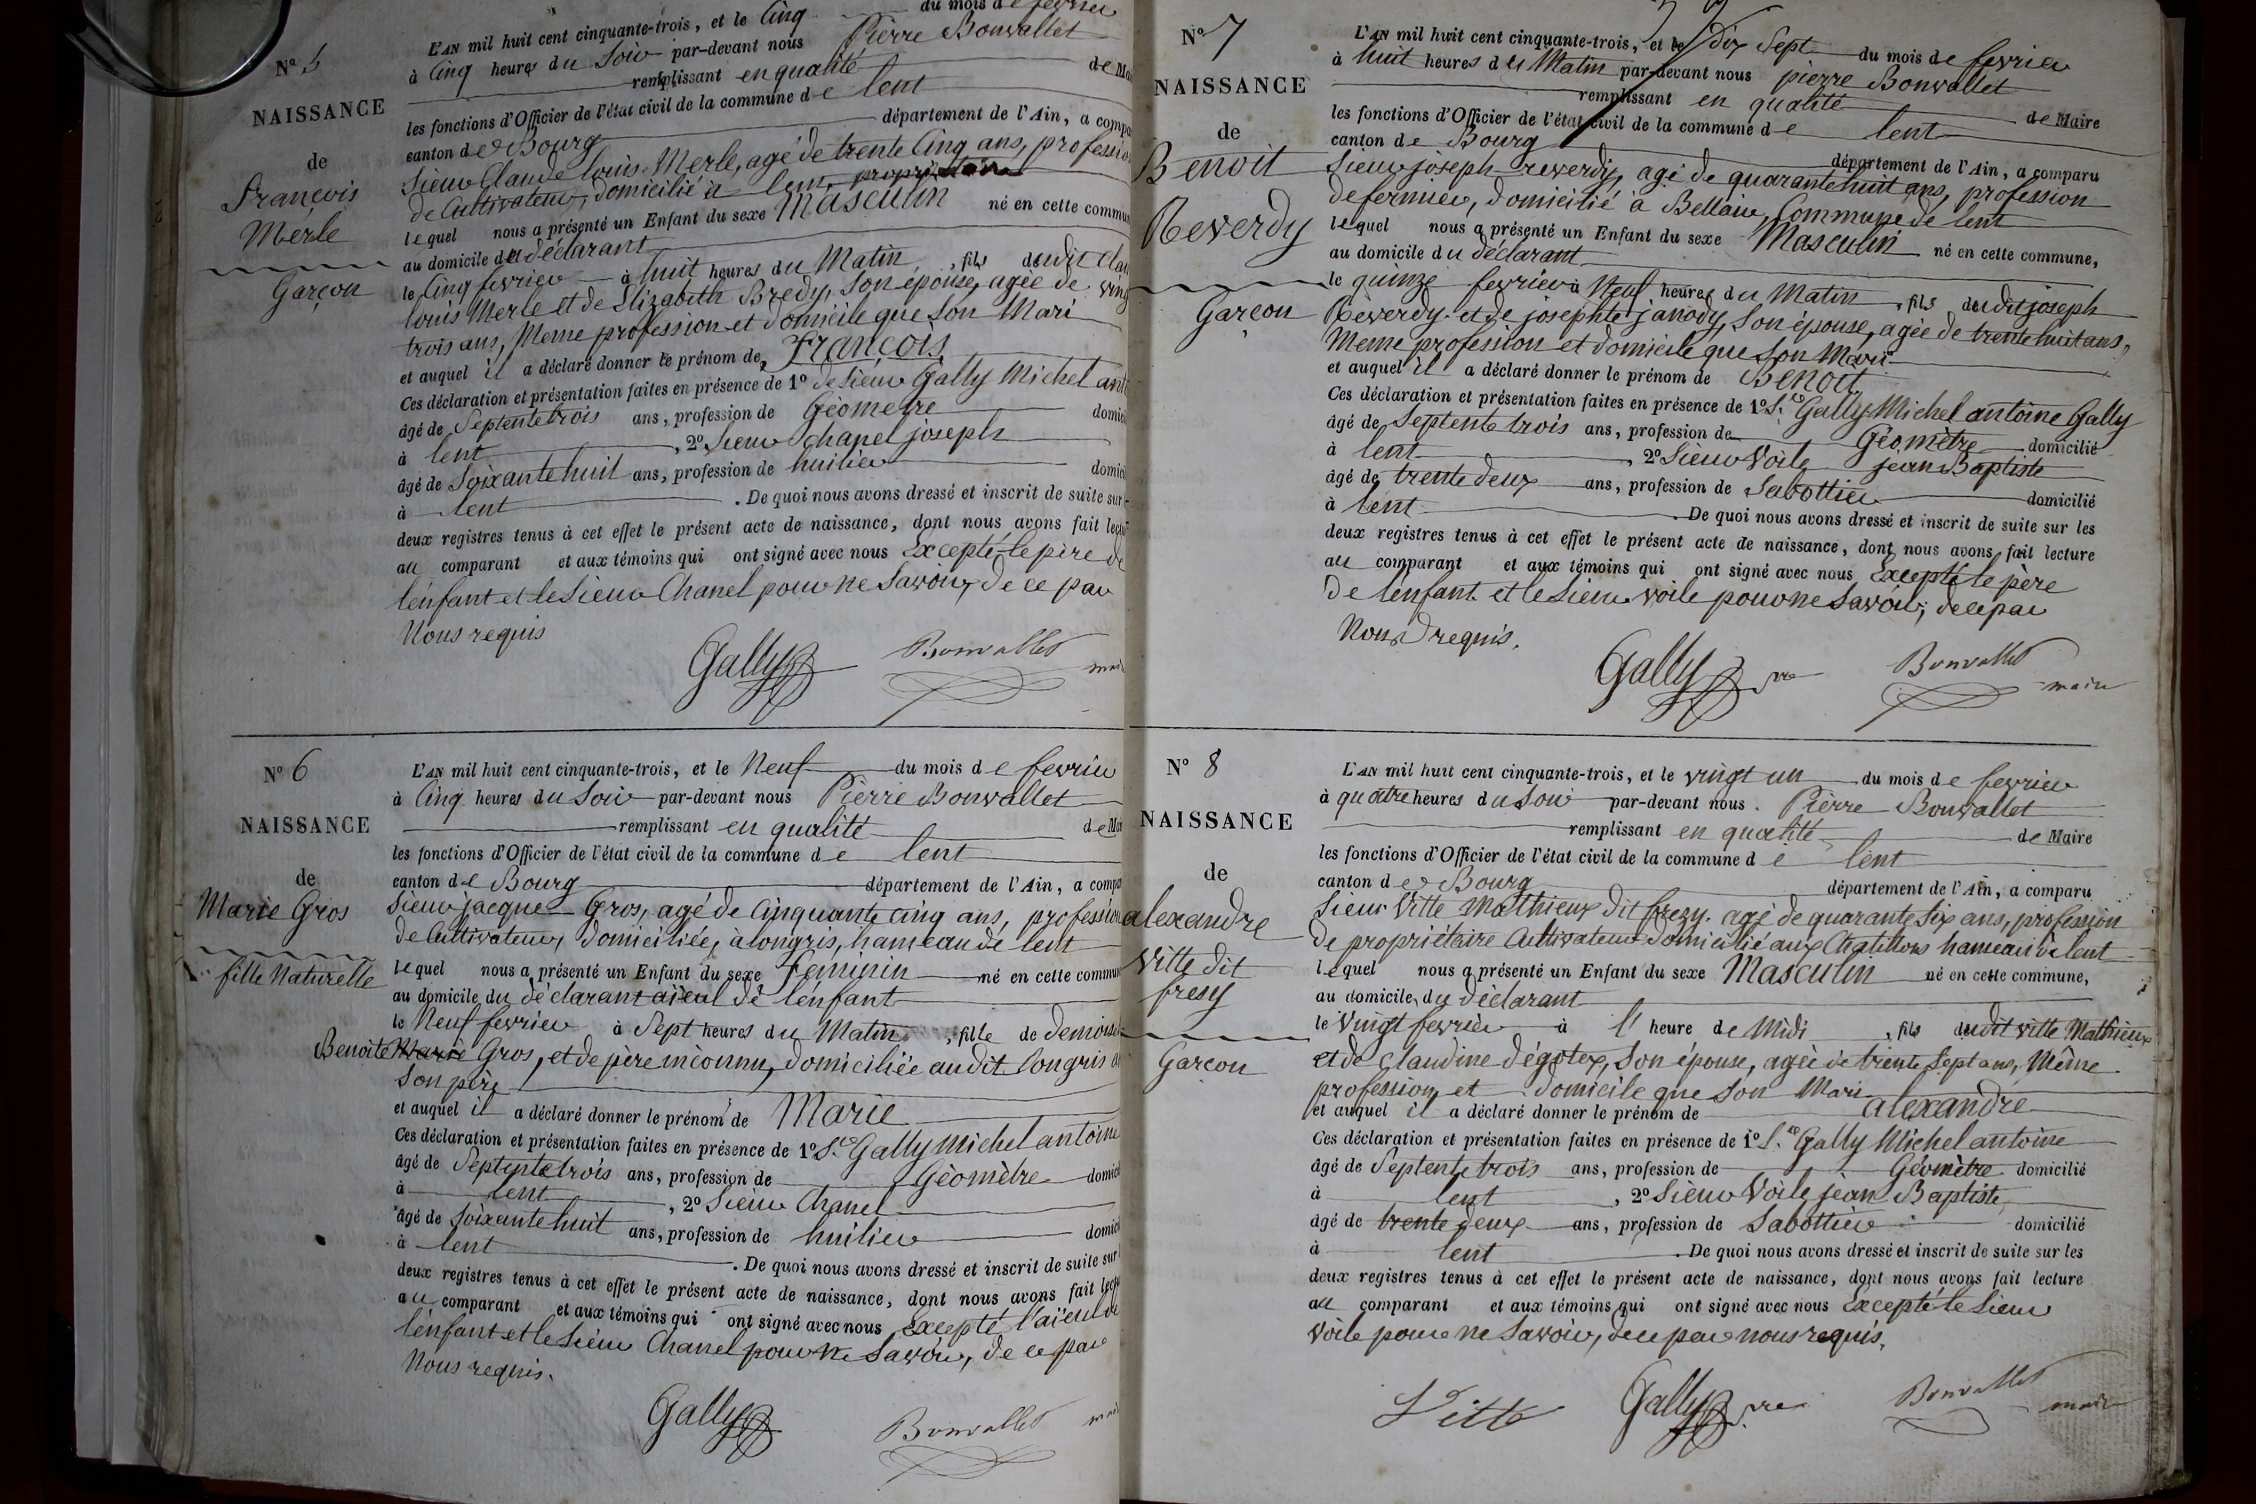 N° 5
NAISSANCE
de
François
Merle
Garçon
du mois de fevrier
L'AN mil huit cent cinquante-trois, et le Cinq
à Cinq heures du Soir par-devant nous Pierre Bonvallet
remplissant en qualité de Mai
les fonctions d'Officier de l'état civil de la commune de lent
canton de Bourg département de l'Ain, a compa
Sieur Claude louis Merle, agé de trente Cinq ans, profession
de Cultivateur, domicilié à lent,
lequel nous a présenté un Enfant du sexe Masculin né en cette commun
au domicile du déclarant
le Cinq fevrier à huit heures du Matin, fils dudit Clau
louis Merle et de Elizabeth Bredy, Son épouse, agée de ving
trois ans, Meme profession et domicile que Son Mari
et auquel il a déclaré donner le prénom de François
Ces déclaration et présentation faites en présence de 1° de Sieur Gally Michel ant
âgé de Septente trois ans, profession de Géometre domici
à lent, 2° Sieur Chanel joseph
âgé de Soixante huit ans, profession de huilier domici
à lent. De quoi nous avons dressé et inscrit de suite sur
deux registres tenus à cet effet le présent acte de naissance, dont nous avons fait lectu
au comparant et aux témoins qui ont signé avec nous Excepté le père de
l'enfant et le Sieur Chanel pour ne Savoir, de ce par
Nous requis
Gally Bonvallet mai
N° 6
NAISSANCE
de
Marie Gros
fille Naturelle
L'AN mil huit cent cinquante-trois, et le Neuf du mois de fevrier
à Cinq heures du Soir par-devant nous Pierre Bonvallet
remplissant en qualité de Mai
les fonctions d'Officier de l'état civil de la commune de lent
canton de Bourg département de l'Ain, a compa
Sieur jacque Gros, agé de Cinquante cinq ans, profession
de Cultivateur, domiciliée, à longris, hameau de lent
lequel nous a présenté un Enfant du sexe Féminin né en cette commun
au domicile du déclarant aïeul de l'enfant
le Neuf fevrier à Sept heures du Matin, fille de demoise
Benoite Marie Gros, et de père inconnu, domiciliée audit longris
Son père
et auquel il a déclaré donner le prénom de Marie
Ces déclaration et présentation faites en présence de 1° Sr Gally Michel antoine
âgé de Septente trois ans, profession de Géomètre domici
à lent, 2° Sieur Chanel
âgé de Soixante huit ans, profession de huilier domici
à lent. De quoi nous avons dressé et inscrit de suite sur
deux registres tenus à cet effet le présent acte de naissance, dont nous avons fait lectu
au comparant et aux témoins qui ont signé avec nous Excepté l'aïeul de
l'enfant et le Sieur Chanel pour ne Savoir, de ce par
Nous requis.
Gally Bonvallet mai
N° 7
NAISSANCE
de
Benoit
Reverdy
Garçon
L'AN mil huit cent cinquante-trois, et le dix Sept du mois de fevrier
à huit heures du Matin par-devant nous pierre Bonvallet
remplissant en qualité de Maire
les fonctions d'Officier de l'état civil de la commune de lent
canton de Bourg département de l'Ain, a comparu
Sieur joseph reverdy, agé de quarante huit ans, profession
de fermier, domicilié à Bellair, Commune de lent
lequel nous a présenté un Enfant du sexe Masculin né en cette commune,
au domicile du déclarant
le quinze fevrier à Neuf heures du Matin, fils dudit joseph
Réverdy et de josephte janody, Son épouse, agée de trente huit ans,
Meme profession et domicile que Son Mari
et auquel il a déclaré donner le prénom de Benoit
Ces déclaration et présentation faites en présence de 1° Sr Gally Michel antoine Gally
âgé de Septente trois ans, profession de Géomètre domicilié
à lent, 2° Sieur Voile jean Baptiste
âgé de trente deux ans, profession de Sabottier domicilié
à lent. De quoi nous avons dressé et inscrit de suite sur les
deux registres tenus à cet effet le présent acte de naissance, dont nous avons fait lecture
au comparant et aux témoins qui ont signé avec nous Excepté le père
de l'enfant et le Sieur voile pour ne Savoir, de ce par
Nous requis.
Gally Bonvallet maire
N° 8
NAISSANCE
de
alexandre
Vitte dit
fresy
Garcon
L'AN mil huit cent cinquante-trois, et le vingt un du mois de fevrier
à quatre heures du Soir par-devant nous Pierre Bonvallet
remplissant en qualité de Maire
les fonctions d'Officier de l'état civil de la commune de lent
canton de Bourg département de l'Ain, a comparu
Sieur Vitte Matthieux dit frezy, agé de quarante Six ans, profession
de propriétaire Cultivateur domicilié aux Chatillons hameau de lent
lequel nous a présenté un Enfant du sexe Masculin né en cette commune,
au domicile du déclarant
le Vingt fevrier à l' heure de Midi, fils dudit vitte Mathieux
et de Claudine dégotex, Son épouse, agée de trente Sept ans, Même
profession et domicile que Son Mari
et auquel il a déclaré donner le prénom de alexandre
Ces déclaration et présentation faites en présence de 1° Sr Gally Michel antoine
âgé de Septente trois ans, profession de Géomètre domicilié
à lent, 2° Sieur Voile jean Baptiste
âgé de trente deux ans, profession de Sabottier domicilié
à lent. De quoi nous avons dressé et inscrit de suite sur les
deux registres tenus à cet effet le présent acte de naissance, dont nous avons fait lecture
au comparant et aux témoins qui ont signé avec nous Excepté le Sieur
Voile pour ne Savoir, de ce par nous requis.
Vitte Gally Bonvallet maire